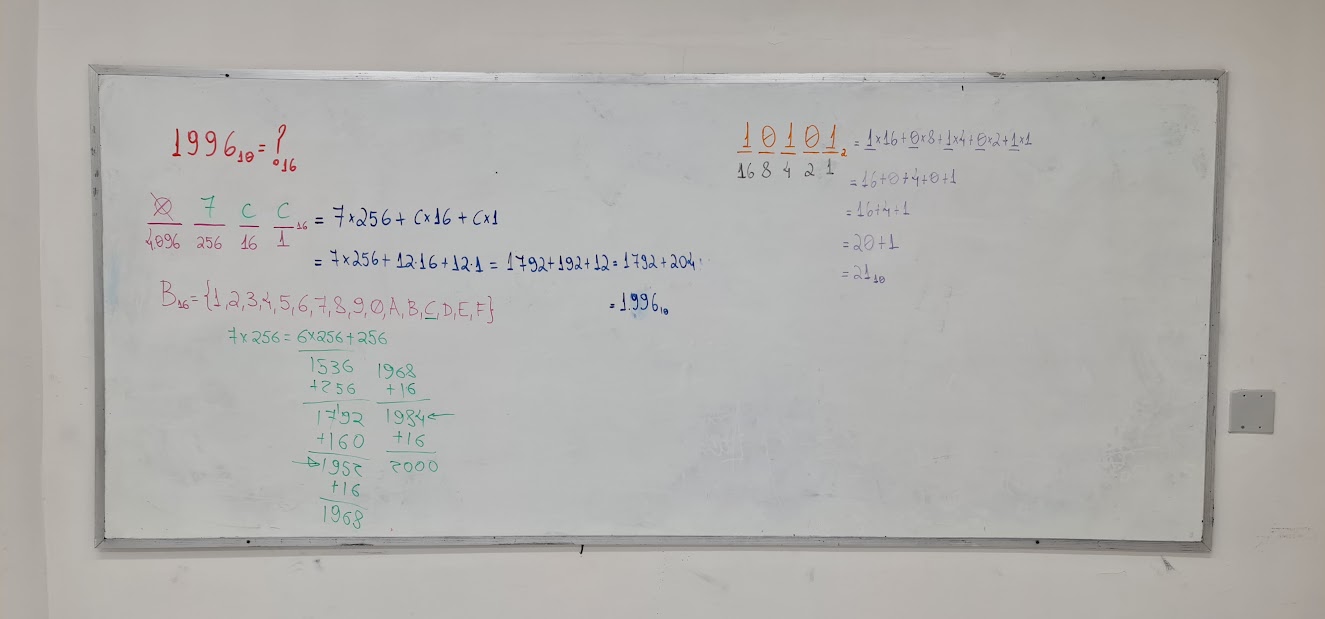 1996₁₀ = ?₁₆
0 7 C C ₁₆ = 7×256 + C×16 + C×1
4.096 256 16 1
= 7×256 + 12·16 + 12·1 = 1792+192+12 = 1792+204
= 1.996₁₀
B₁₆ = {1,2,3,4,5,6,7,8,9,0,A,B,C,D,E,F}
7×256 = 6×256+256
1536
+256
1792
+160
1952
+16
1968
1968
+16
1984 ←
+16
2000
1 0 1 0 1 ₂ = 1×16+0×8+1×4+0×2+1×1
16 8 4 2 1
= 16+0+4+0+1
= 16+4+1
= 20+1
= 21₁₀